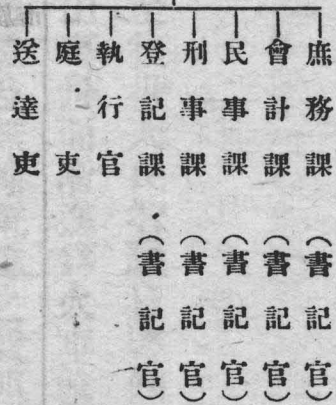 庶務課（書記官）
會計課（書記官）
民事課（書記官）
刑事課（書記官）
登記課（書記官）
執行官
庭吏
送達吏